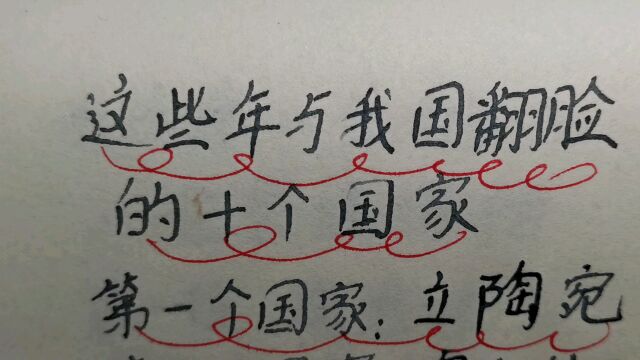 这些年与我国翻脸
的十个国家
第一个国家：立陶宛